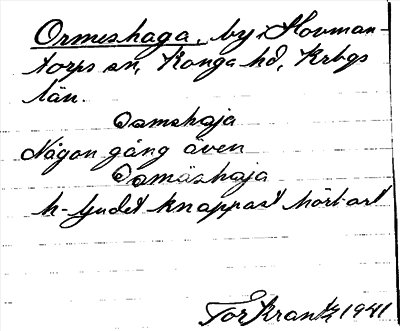 Ormeshaga, by i Hovman-
torps sn, Konga hd, Krbgs
län.
Ormshaja
Någon gång även
Ormäshaja
h-ljudet knappast hörbart
Tor Krantz 1941